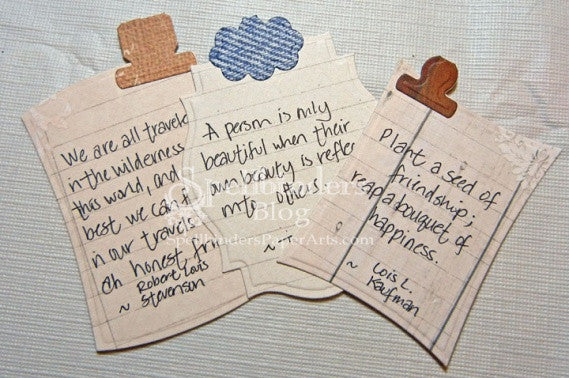 We are all travele
in the wilderness
this world, and
best we can f
in our travels
an honest, fri
~ Robert Louis
Stevenson
A person is only
beautiful when their
own beauty is refle
into others.
~
Plant a seed of
friendship;
reap a bouquet of
happiness.
~ Lois L.
Kaufman
Spellbinders
Blog
SpellbindersPaperArts.com